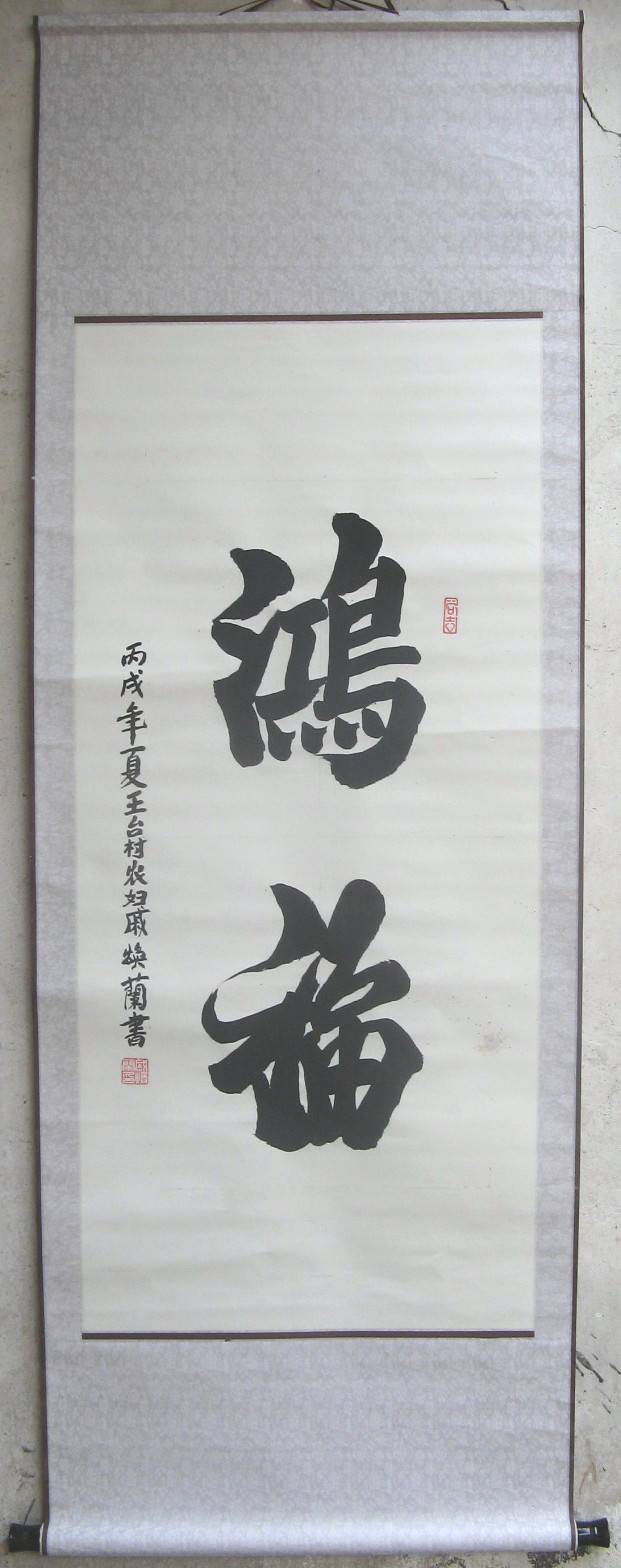 鸿福
丙戌年夏王台村农妇戚焕蘭書